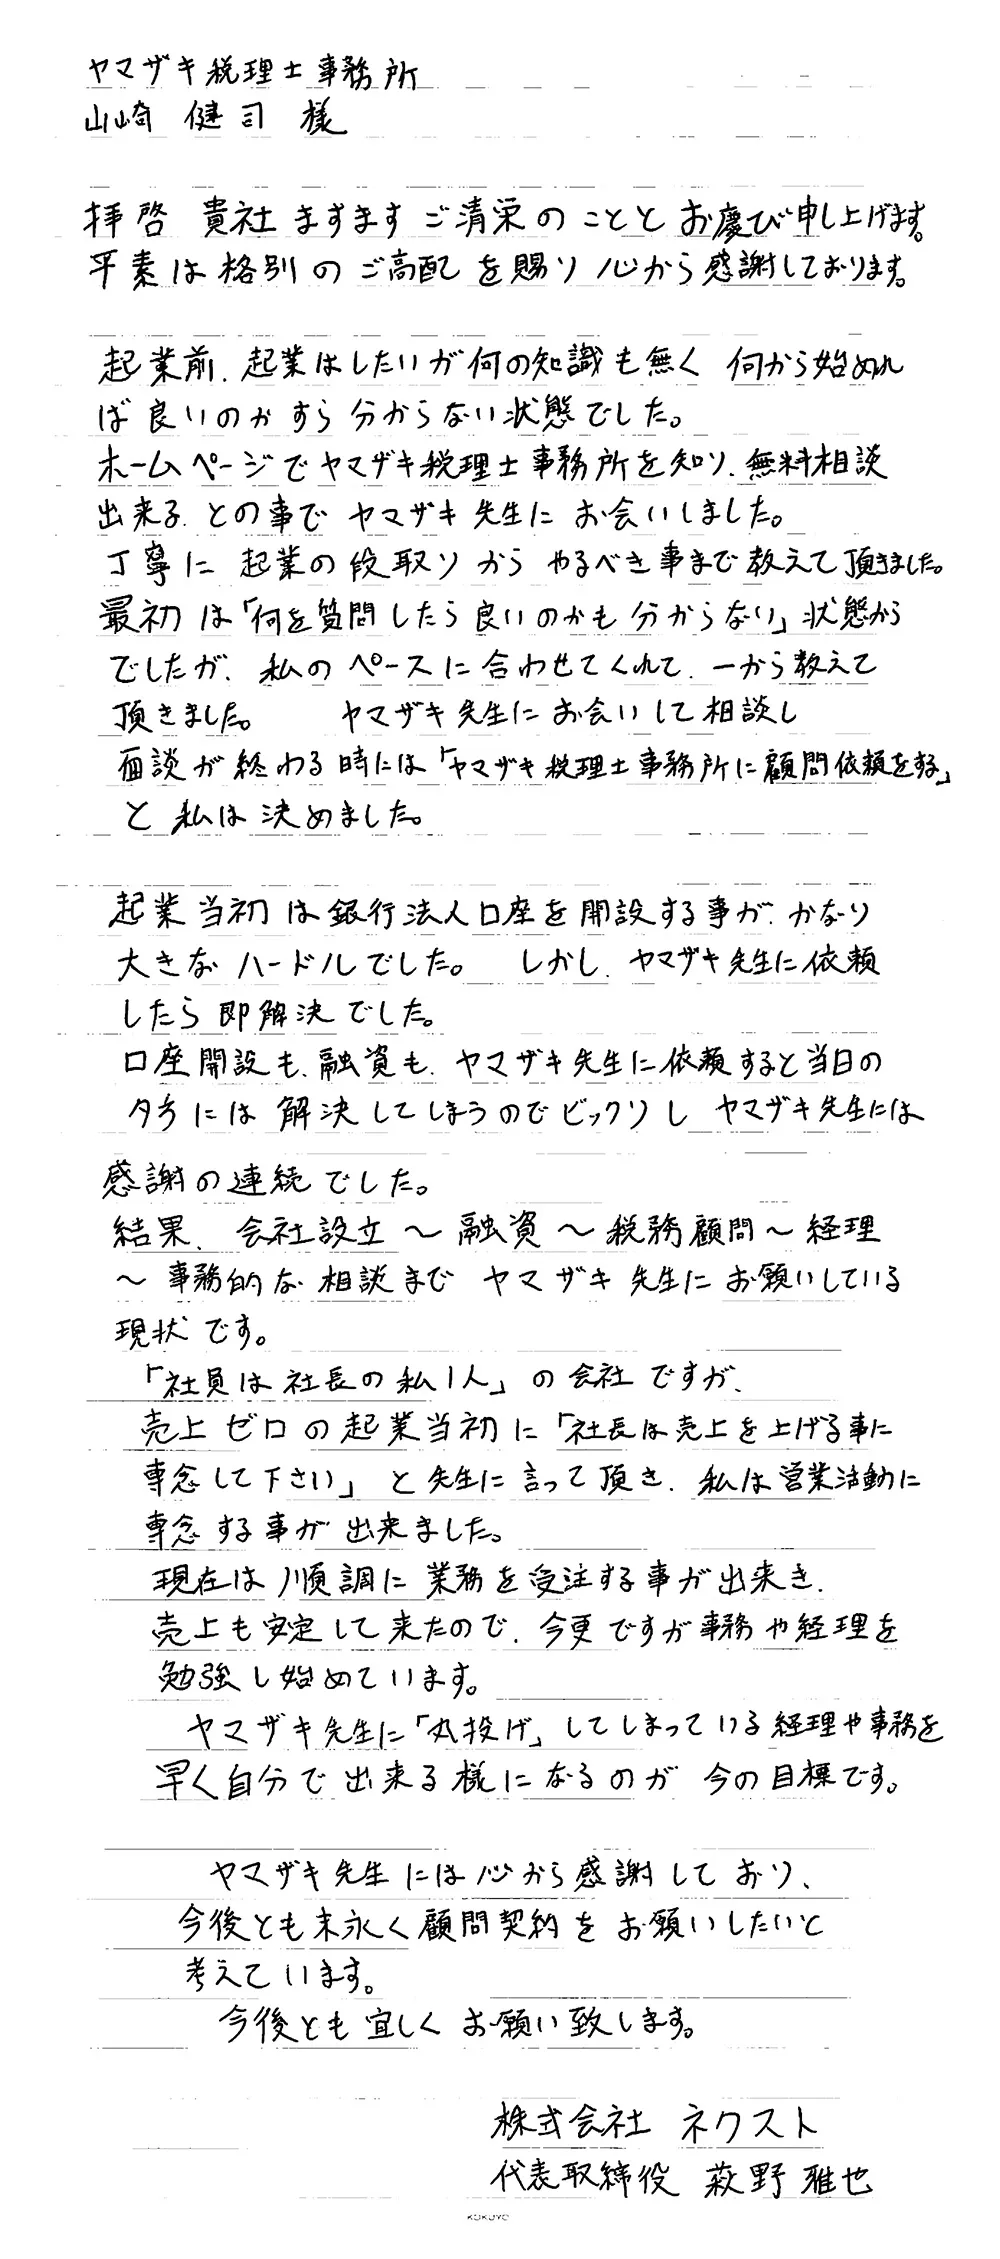 ヤマザキ税理士事務所
山崎 健司 様
拝啓 貴社ますますご清栄のこととお慶び申し上げます。
平素は格別のご高配を賜り心から感謝しております。
起業前、起業はしたいが何の知識も無く 何から始めれ
ば良いのかすら分からない状態でした。
ホームページでヤマザキ税理士事務所を知り、無料相談
出来る、との事でヤマザキ先生にお会いしました。
丁寧に起業の段取りからやるべき事まで教えて頂きました。
最初は「何を質問したら良いのかも分からない」状態から
でしたが、私のペースに合わせてくれて、一から教えて
頂きました。 ヤマザキ先生にお会いして相談し
面談が終わる時には「ヤマザキ税理士事務所に顧問依頼をする」
と私は決めました。
起業当初は銀行法人口座を開設する事が、かなり
大きなハードルでした。 しかし、ヤマザキ先生に依頼
したら即解決でした。
口座開設も、融資も、ヤマザキ先生に依頼すると当日の
夕方には解決してしまうのでビックリし ヤマザキ先生には
感謝の連続でした。
結果、会社設立～融資～税務顧問～経理
～事務的な相談まで ヤマザキ先生にお願いしている
現状です。
「社員は社長の私1人」の会社ですが、
売上ゼロの起業当初に「社長は売上を上げる事に
専念して下さい」と先生に言って頂き、私は営業活動に
専念する事が出来ました。
現在は順調に業務を受注する事が出来き、
売上も安定して来たので、今更ですが事務や経理を
勉強し始めています。
ヤマザキ先生に「丸投げ」してしまっている経理や事務を
早く自分で出来る様になるのが今の目標です。
ヤマザキ先生には心から感謝しており、
今後とも末永く顧問契約をお願いしたいと
考えています。
今後とも宜しくお願い致します。
株式会社 ネクスト
代表取締役 萩野 雅也
KOKUYO